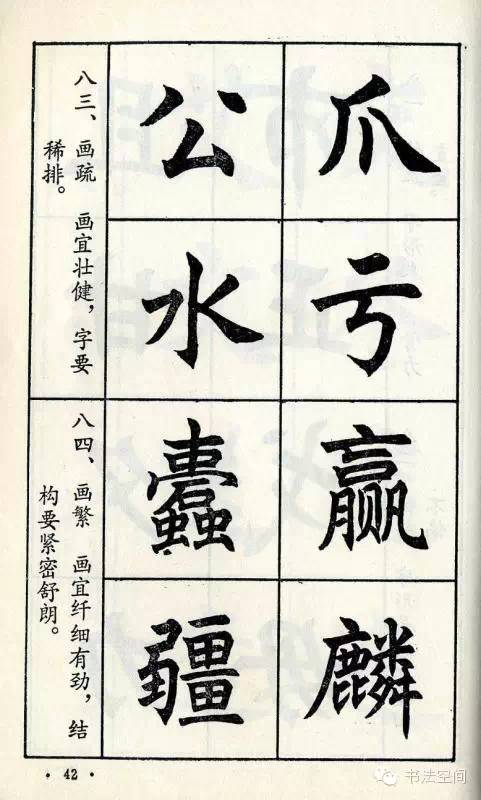 爪
亏
公
水
八三、 画疏 画宜壮健，字要
稀排。
赢
麟
蠹
疆
八四、 画繁 画宜纤细有劲，结
构要紧密舒朗。
· 42 ·
书法空间